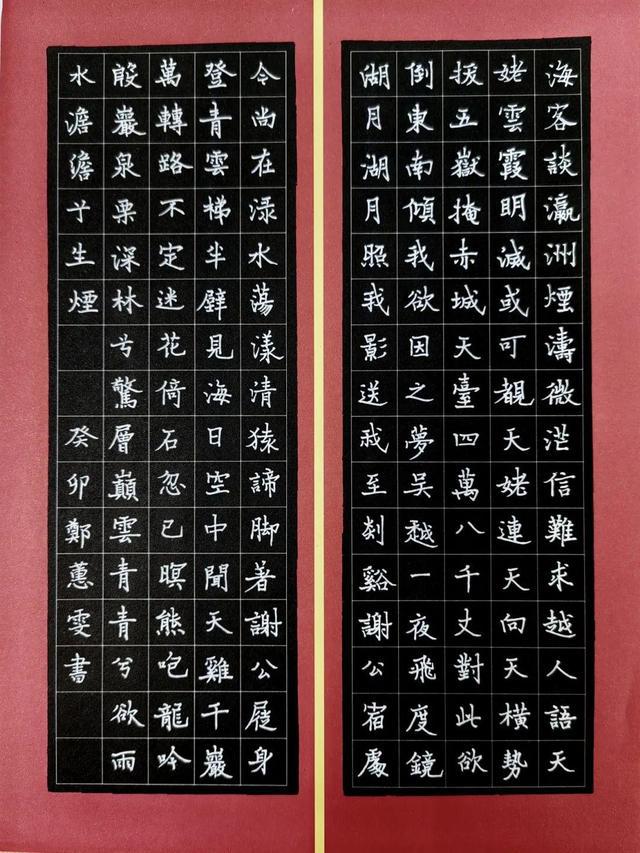 海客談瀛洲煙濤微茫信難求越人語天
姥雲霞明滅或可覩天姥連天向天橫勢
拔五嶽掩赤城天臺四萬八千丈對此欲
倒東南傾我欲因之夢吳越一夜飛度鏡
湖月湖月照我影送我至剡谿謝公宿處
今尚在淥水蕩漾清猿諦脚著謝公屐身
登青雲梯半壁見海日空中聞天雞千巖
萬轉路不定迷花倚石忽已暝熊咆龍吟
殷巖泉栗深林兮驚層巔雲青青兮欲雨
水澹澹兮生煙 癸卯鄭蕙雯書